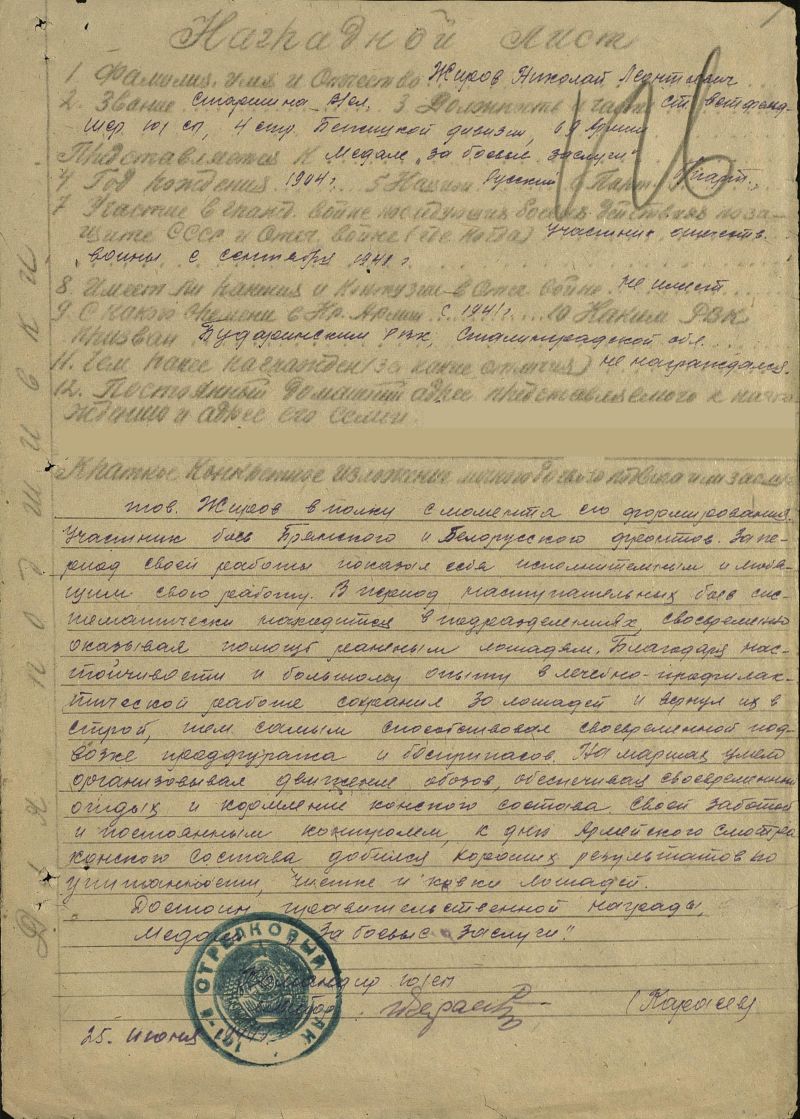 Наградной лист
1. Фамилия, имя и Отчество Жиров Николай Леонтьевич
2. Звание старшина в/сл. 3 Должность и часть ст. ветфельд-
шер сп, 4 стр. Бежицкой дивизии,
Представляется к Медале „За боевые заслуги"
4 Год рождения 5 Национ. Русский 6 Парт.
7 Участие в гражд. войне последующих боевых действиях по за-
щите СССР и Отеч. войне (где, когда) участник отечеств.
войны с сентября 1941 г.
8. Имеет ли ранения и контузии в Отеч. войне. не имеет
9. С какого времени в Кр. Армии с 1941 г. 10 Каким РВК
призван Бударинским РВК, Сталинградской обл.
11. Чем ранее награжден (за какие отличия) не награждался.
12. Постоянный домашний адрес представляемого к награ-
ждению и адрес его семьи.
Краткое конкретное изложение личного боевого подвига или заслуг
тов. Жиров в полку с момента его формирования.
Участник боев Брянского и Белорусского фронтов. За пе-
риод своей работы показал себя исполнительным и любя-
щим свою работу. В период наступательных боев сис-
тематически находится в подразделениях, своевременно
оказывая помощь раненым лошадям. Благодаря нас-
тойчивости и большому опыту в лечебно-профилак-
тической работе сохранил 30 лошадей и вернул их в
строй, тем самым способствовал своевременной под-
возке продфуража и боеприпасов. На маршах умело
организовывал движение обозов, обеспечивая своевременный
отдых и кормление конского состава. Своей заботой
и постоянным контролем, к дню Армейского смотра
конского состава добился хороших результатов по
упитанности, чистке и ковки лошадей.
Достоин правительственной награды,
Медали „За боевые заслуги".
Командир сп
(Карасев)
25. июня 1944 г.
СТРЕЛКОВЫЙ
Для подшивки